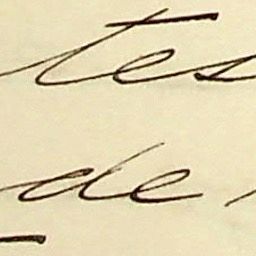 tes
de